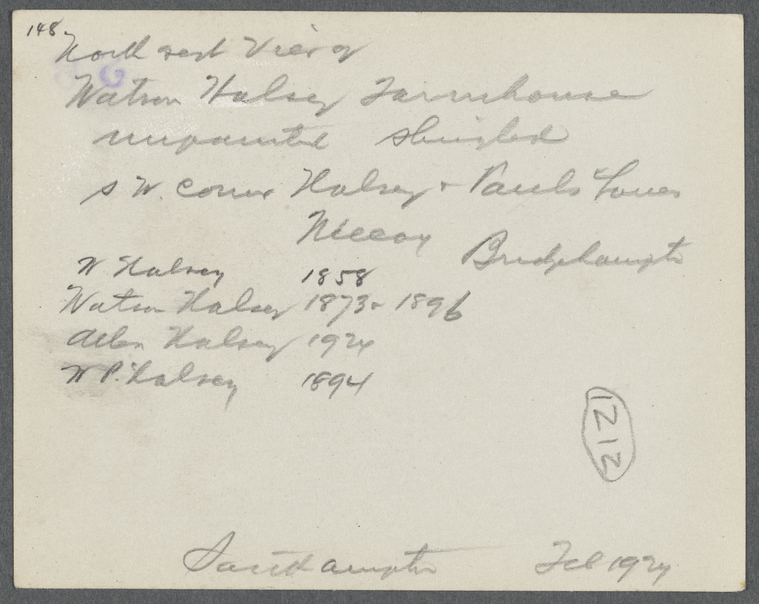 148
North west View of
Watson Halsey Farmhouse
unpainted shingled
S W. Corner Halsey + Pauls Lanes
Mecox Bridgehampton
W Halsey 1858
Watson Halsey 1873 + 1896
Allen Halsey 1924
W P. Halsey 1894
1212
Southampton Feb 1924